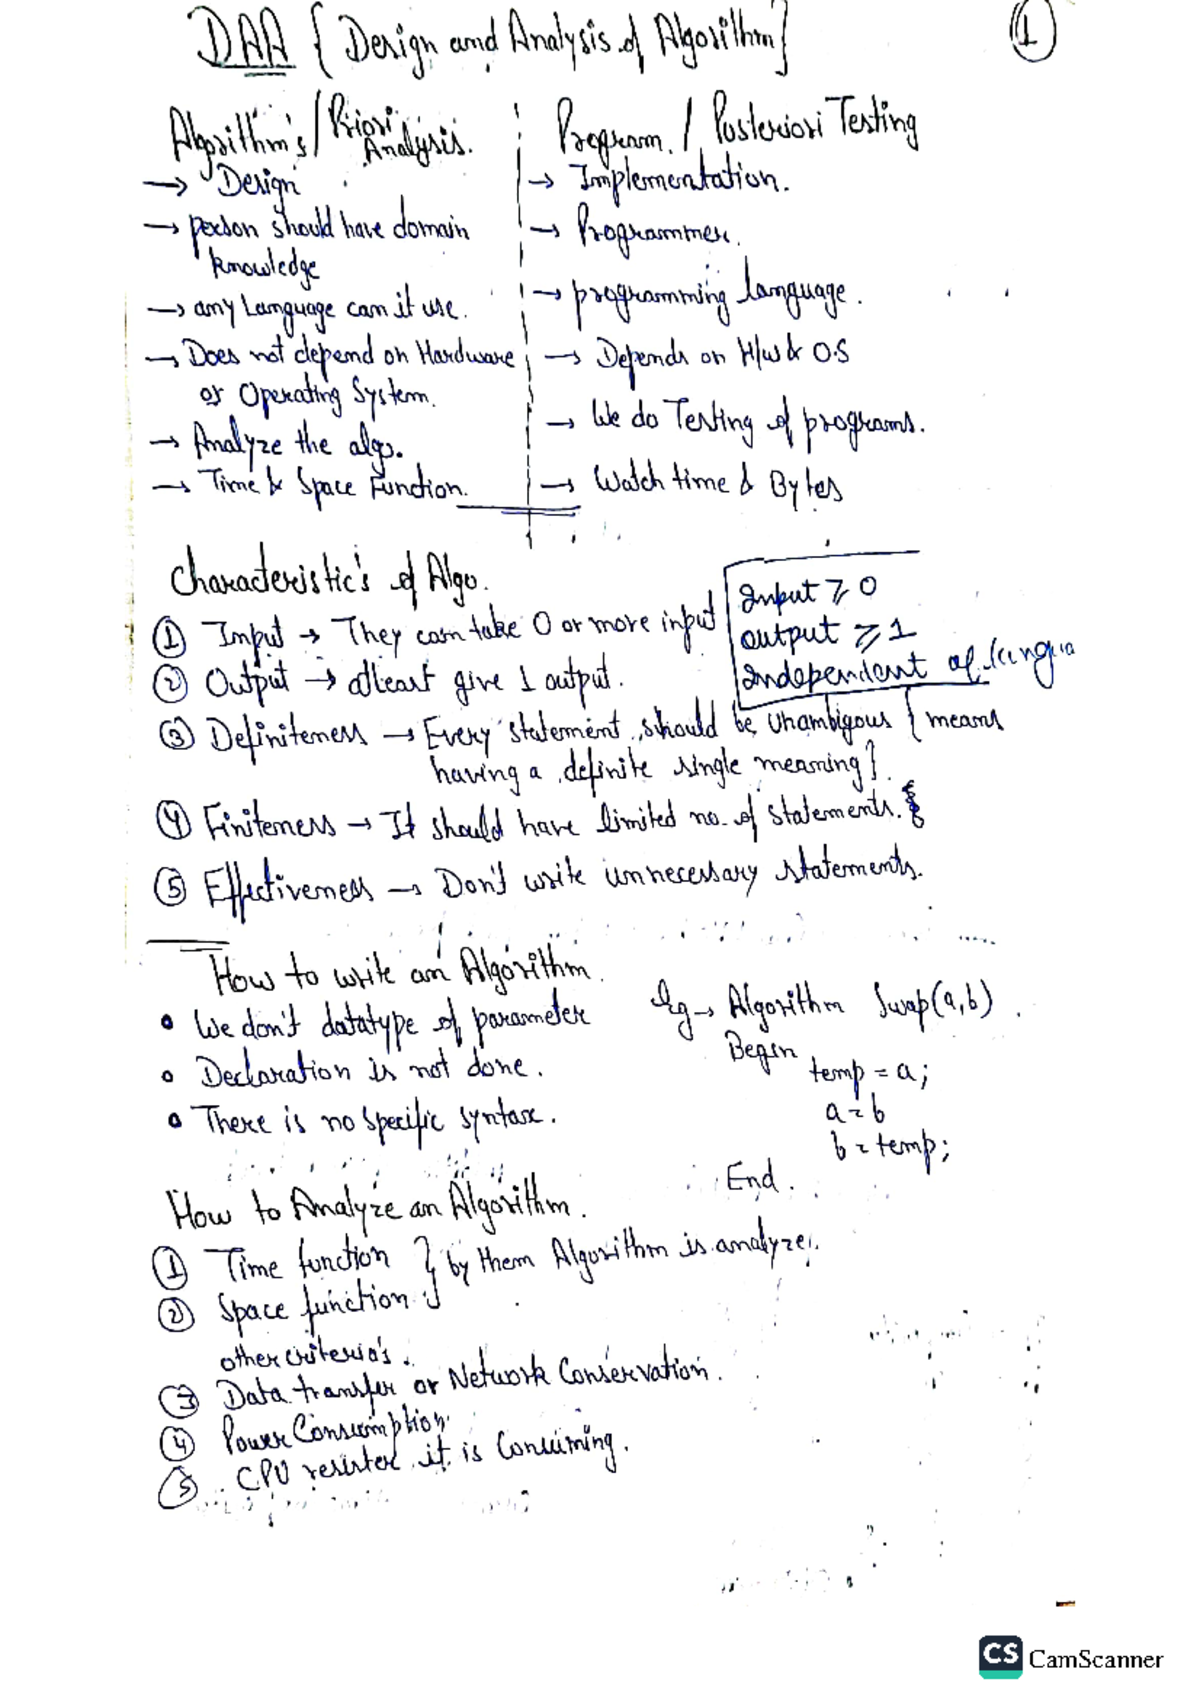 DAA { Design and Analysis of Algorithm}
1
Algorithm's / Priori Analysis.
→ Design
→ person should have domain
knowledge
→ any Language can it use.
→ Does not depend on Hardware
or Operating System.
→ Analyze the algo.
→ Time & Space Function.
Program. / Posteriori Testing
→ Implementation.
→ Programmer.
→ programming language.
→ Depends on H/w & O.S
→ We do Testing of programs.
→ Watch time & Bytes
Characteristic's of Algo.
① Input → They can take 0 or more input
② Output → atleast give 1 output.
③ Definiteness → Every statement should be unambigous { means
having a definite single meaning}.
④ Finiteness → It should have limited no. of statements.
⑤ Effectiveness → Don't write unnecessary statements.
Input ≥ 0
output ≥ 1
Independent of langua
How to write an Algorithm.
• We don't datatype of parameter
• Declaration is not done.
• There is no specific syntax.
Eg → Algorithm Swap(a,b)
Begin
temp = a;
a = b
b = temp;
End.
How to Analyze an Algorithm.
① Time function } by them Algorithm is analyze.
② Space function
other criteria's.
③ Data transfer or Network Conservation.
④ Power Consumption
⑤ CPU resister it is Consuming.
CS CamScanner